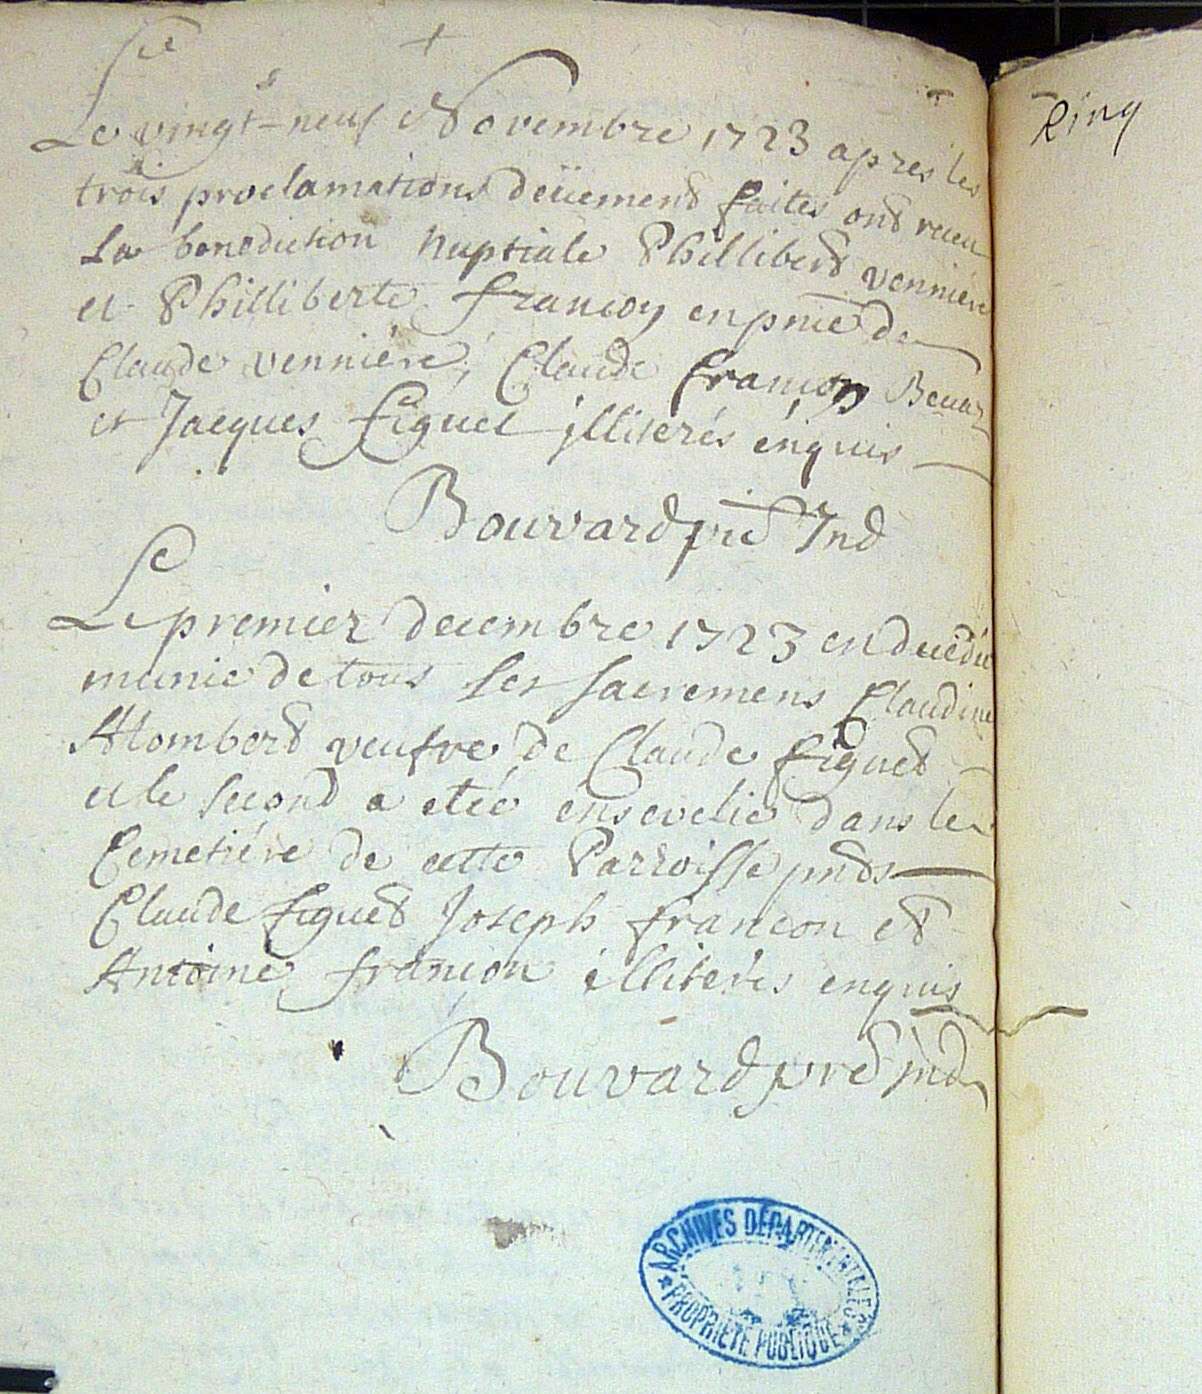 Le vingt-neuf Novembre 1723 apres les
trois proclamations deüement faites ont receu
La benediction nuptiale Phillibert venniere
et Philliberte francoy en pnce de
Claude venniére, Claude francoy
et Jacques figuet illiterés énquis
Bouvard pre Ind
Le premier decembre 1723 en decedée
munie de tous les sacremens Claudine
Alombert veufve de Claude figuet
et le second a eteé ensevelie dans le
Cemetiére de cette Parroisse pnts
Claude figuet Joseph francon et
Antoine francon illiterés enquis
Bouvard pre Ind
ARCHIVES DÉPARTEMENTALES
PROPRIÉTÉ PUBLIQUE